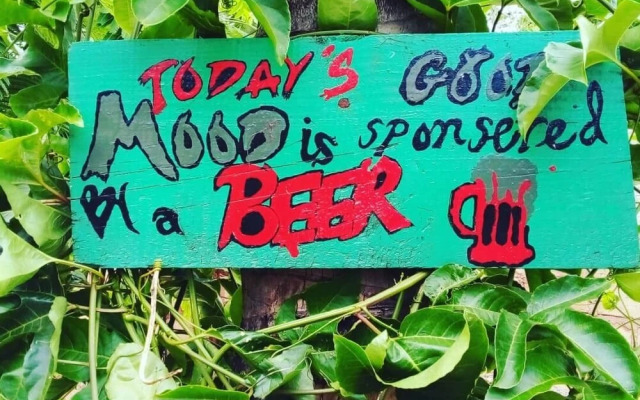 TODAY'S GOOD
MOOD is sponsered
BY a BEER